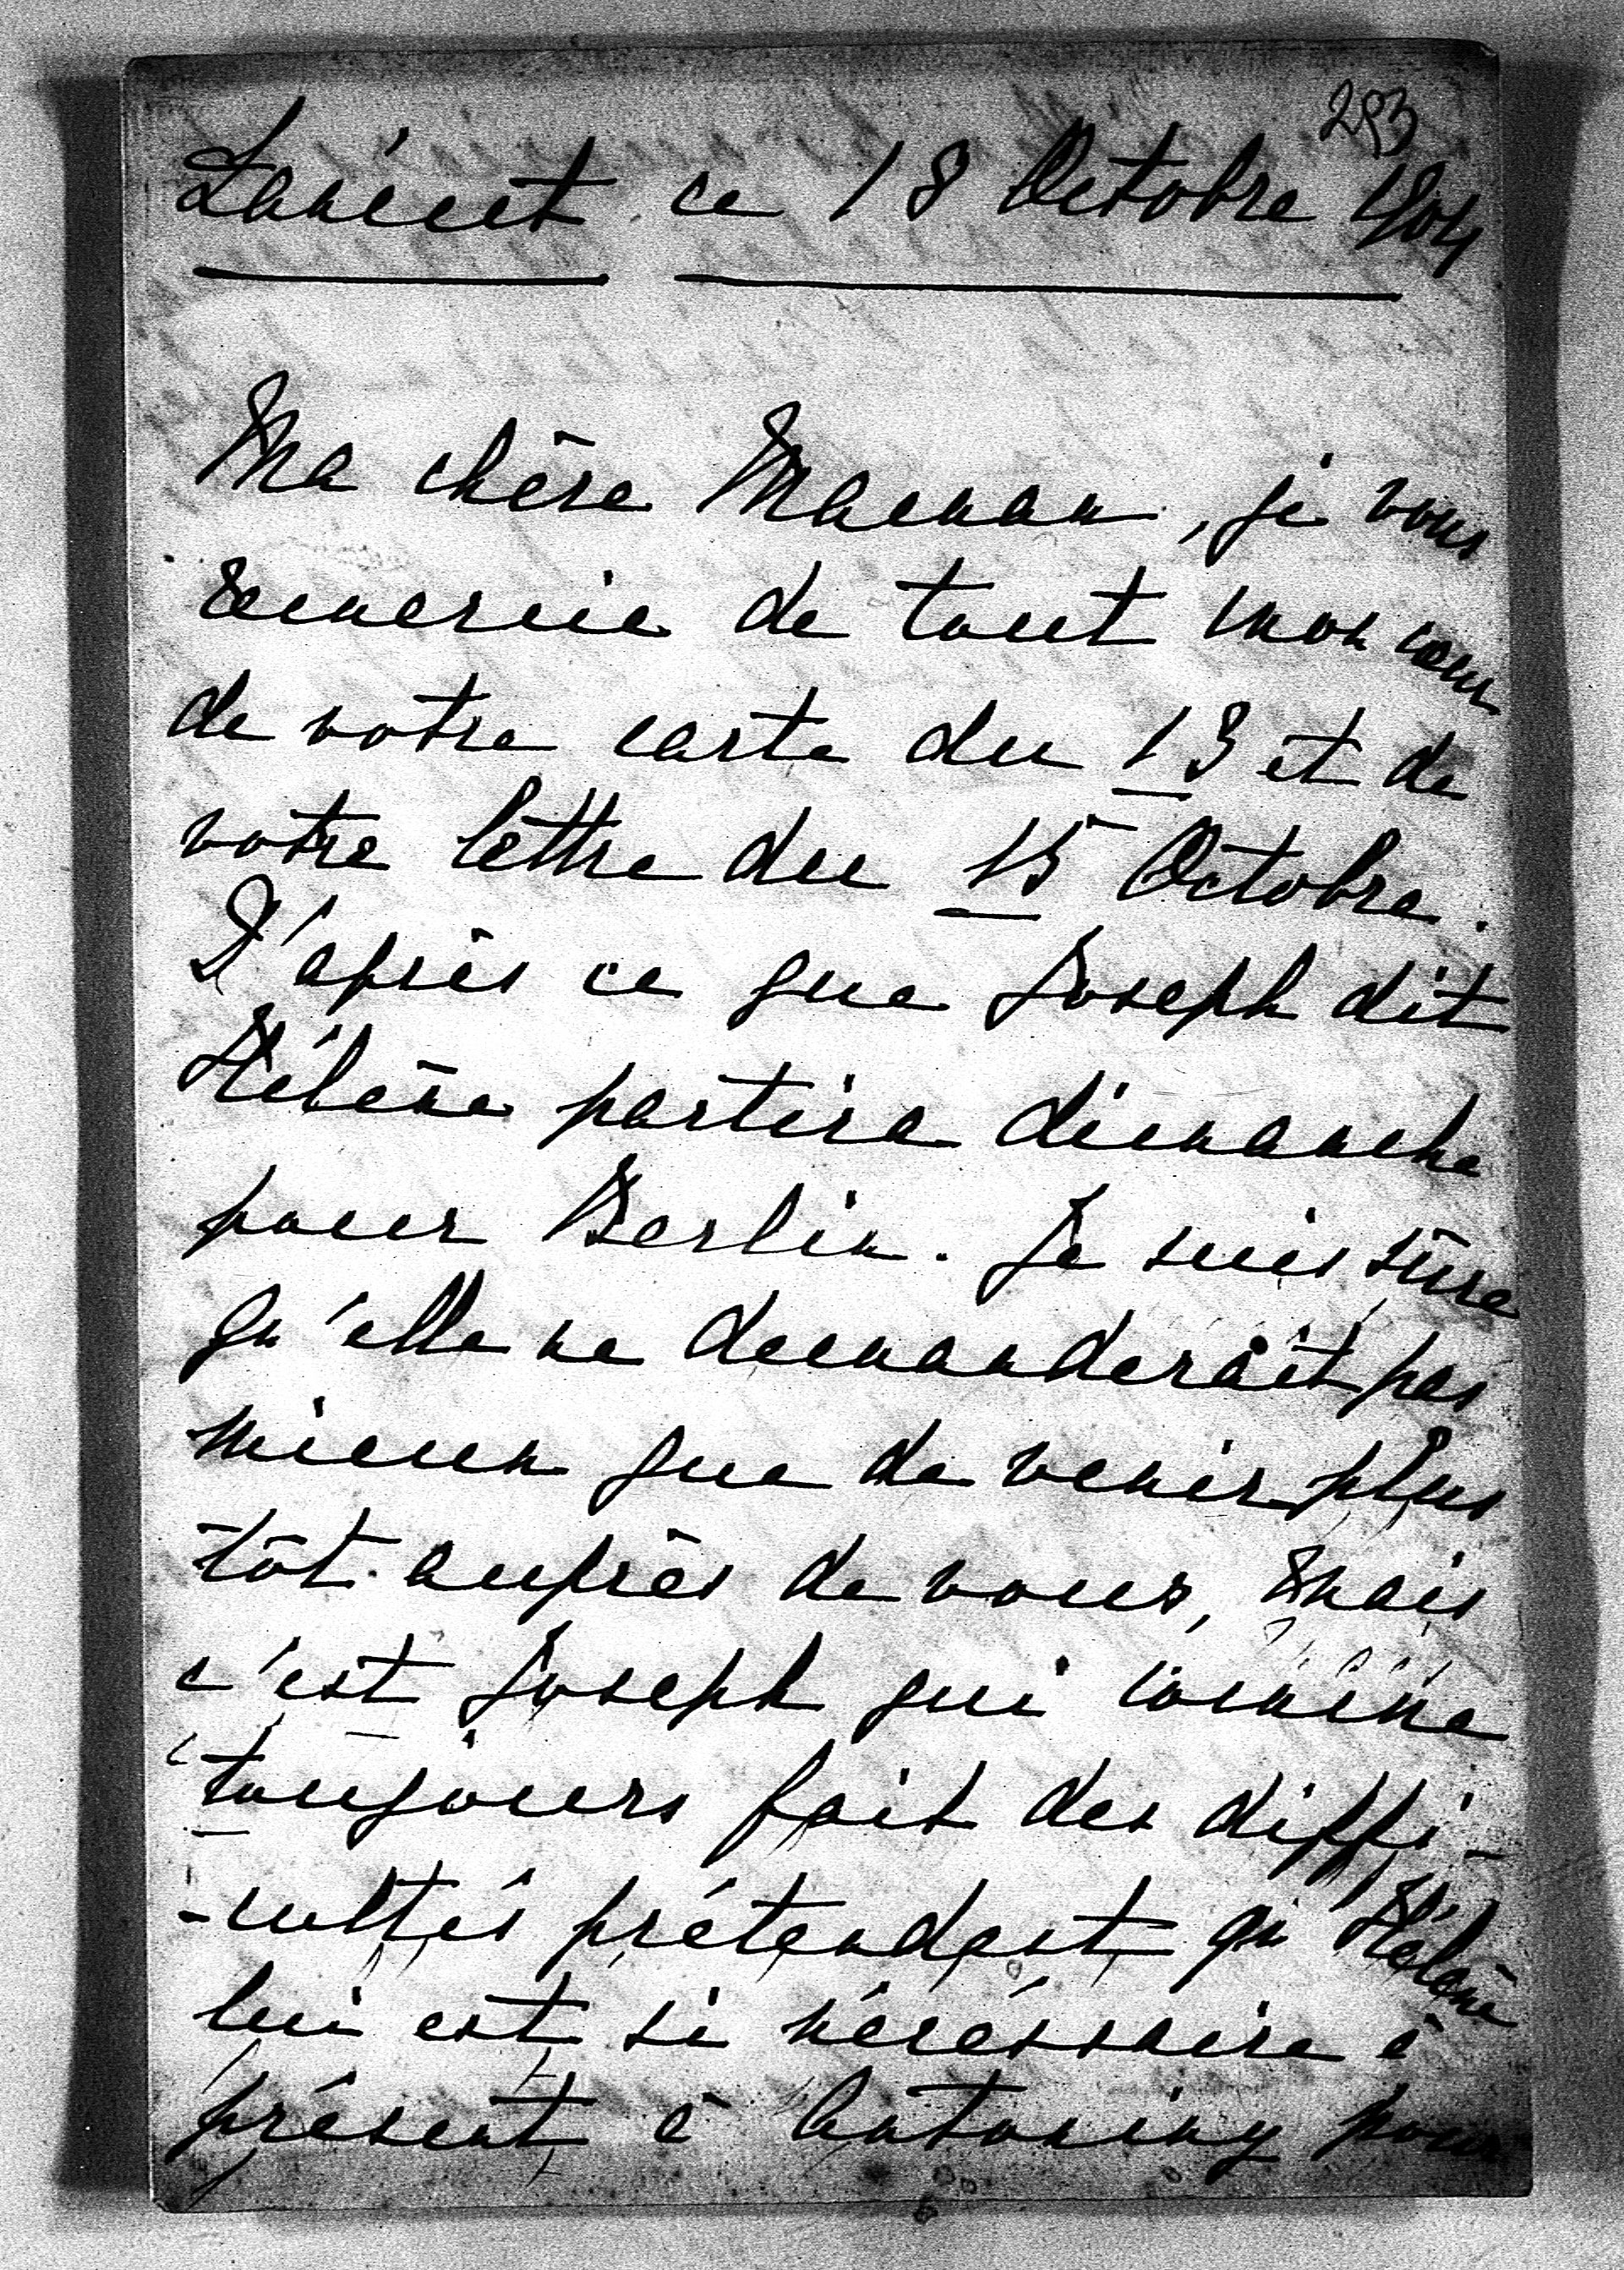 293
Łańcut ce 18 Octobre 1904
Ma chère Maman, je vous
remercie de tout mon cœur
de votre carte du 13 et de
votre lettre du 15 Octobre.
D'après ce que Joseph dit
Hélène partira dimanche
pour Berlin. Je suis sûre
qu'elle ne demanderait pas
mieux que de venir plus
tôt auprès de vous, mais
c'est Joseph qui comme
toujours fait des diffi-
-cultés prétendant qu'Hélène
lui est si nécéssaire à
présent à Antoniny pour